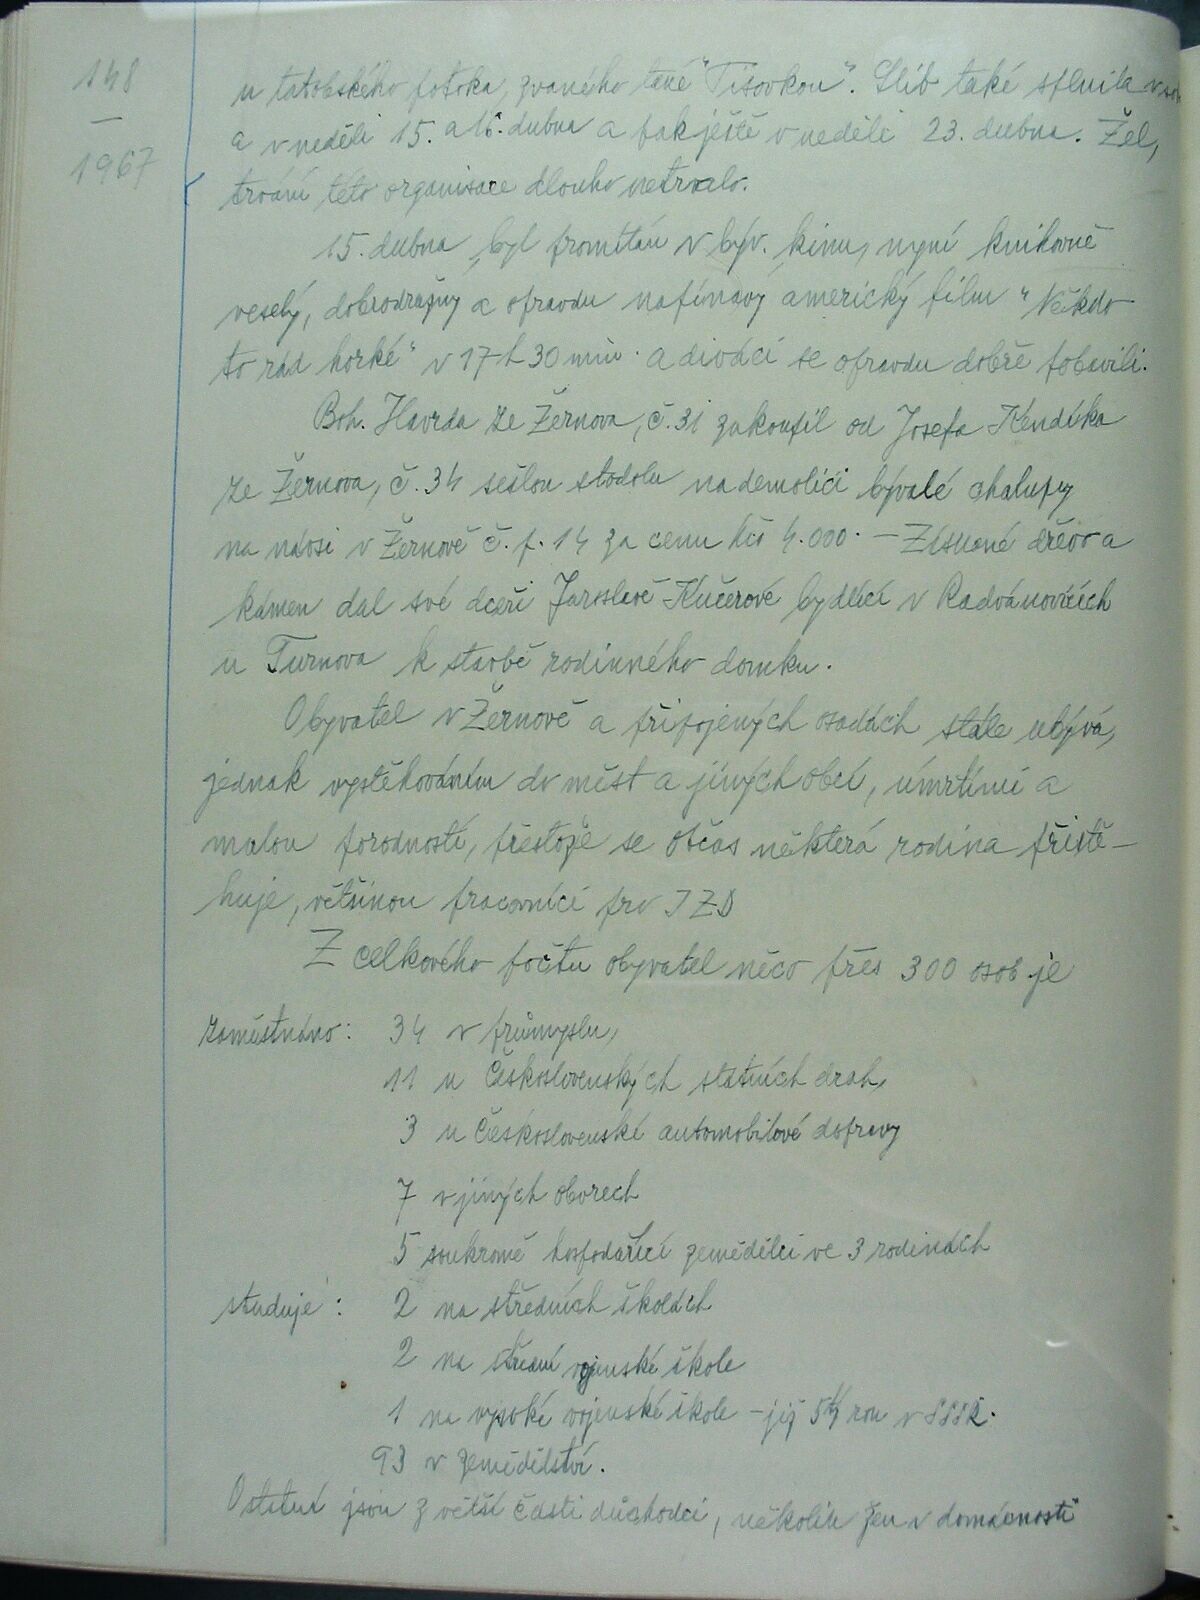 148
—
1967
u tatobského potoka, zvaného také "Tisovkou". Slib také splnila v
a v neděli 15. a 16. dubna a pak ještě v neděli 23. dubna. Žel,
trvání této organisace dlouho netrvalo.
15. dubna byl promítán v býv. kinu, nyní knihovně
veselý, dobrodružný a opravdu napínavý americký film "Někdo
to rád horké" v 17 h 30 min. a diváci se opravdu dobře pobavili.
Boh. Havrda ze Žernova, č. 31 zakoupil od Josefa Kendíka
ze Žernova, č. 34 sešlou stodolu na demolici bývalé chalupy
na návsi v Žernově č. p. 14 za cenu Kčs 4.000.— Získané dřevo a
kámen dal své dceři Jaroslavě Kučerové bydlící v Radvánovicích
u Turnova k stavbě rodinného domku.
Obyvatel v Žernově a připojených osadách stále ubývá,
jednak vystěhováním do měst a jiných obcí, úmrtími a
malou porodností, přestože se občas některá rodina přistě-
huje, většinou pracovníci pro JZD
Z celkového počtu obyvatel něco přes 300 osob je
zaměstnáno: 34 v průmyslu,
11 u Československých státních drah,
3 u Československé automobilové dopravy
7 v jiných oborech
5 soukromě hospodařící zemědělci ve 3 rodinách
studuje: 2 na středních školách
2 na střední vojenské škole
1 na vysoké vojenské škole – již rou v SSSR.
93 v zemědělství.
Ostatní jsou z větší části důchodci, několik žen v domácnosti